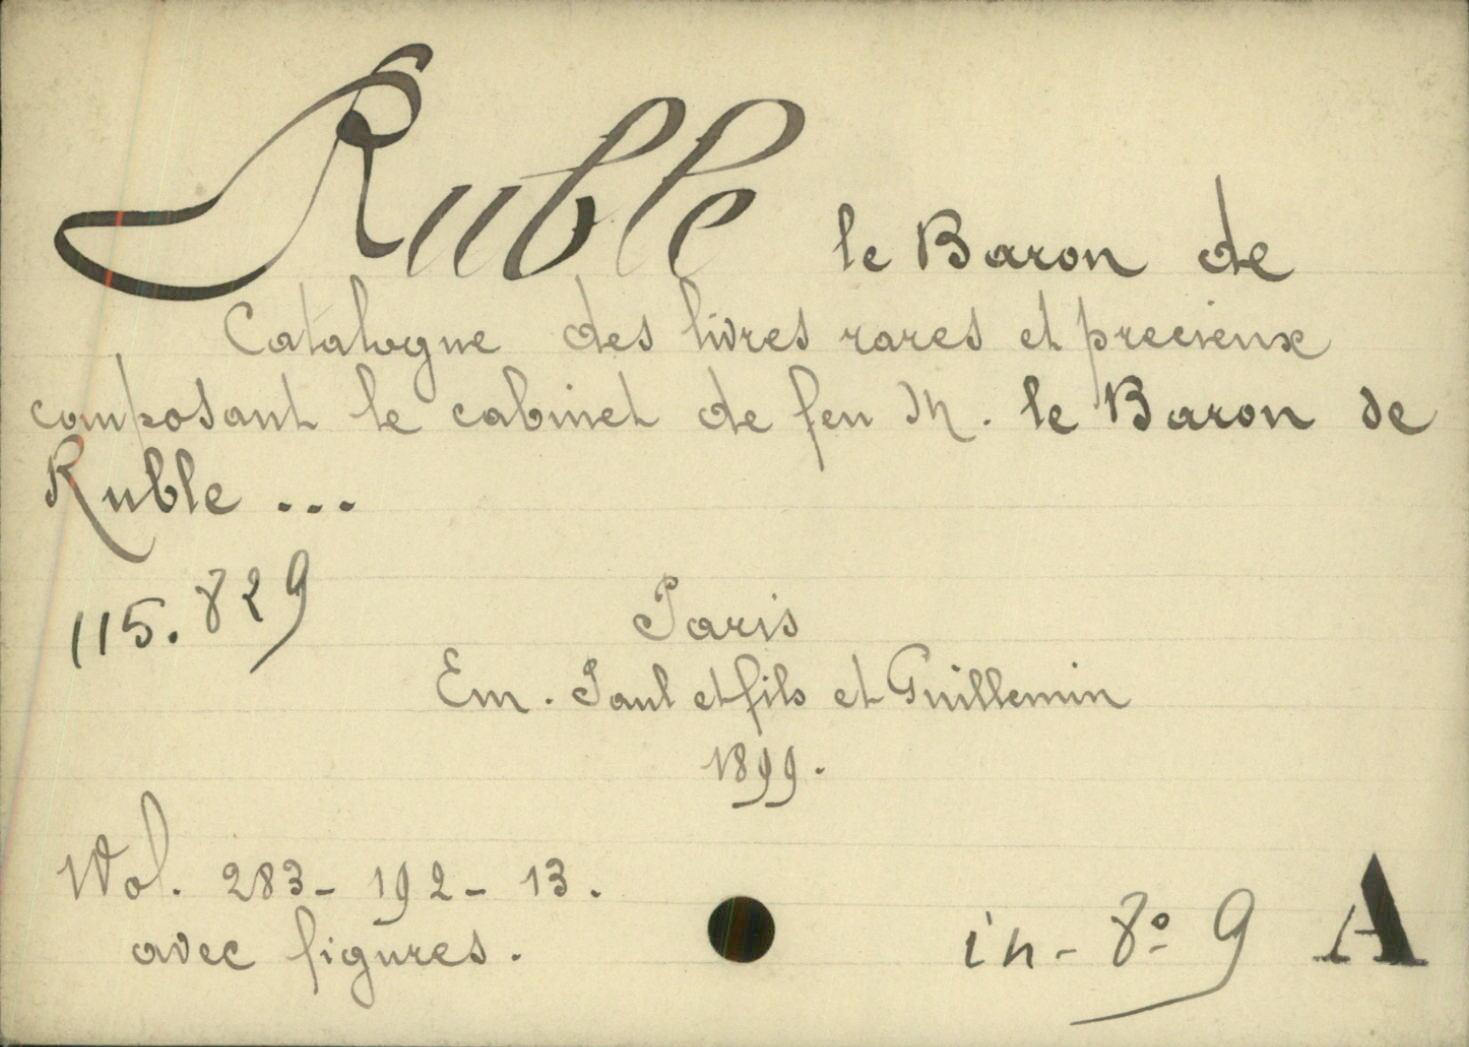 Ruble le Baron de
Catalogue des livres rares et precieux
composant le cabinet de feu M. le Baron de
Ruble ...
115.829
Paris
Em. Paul et fils et Guillemin
1899.
1 Vol. 283 - 192 - 13.
avec figures.
in - 8º 9 A